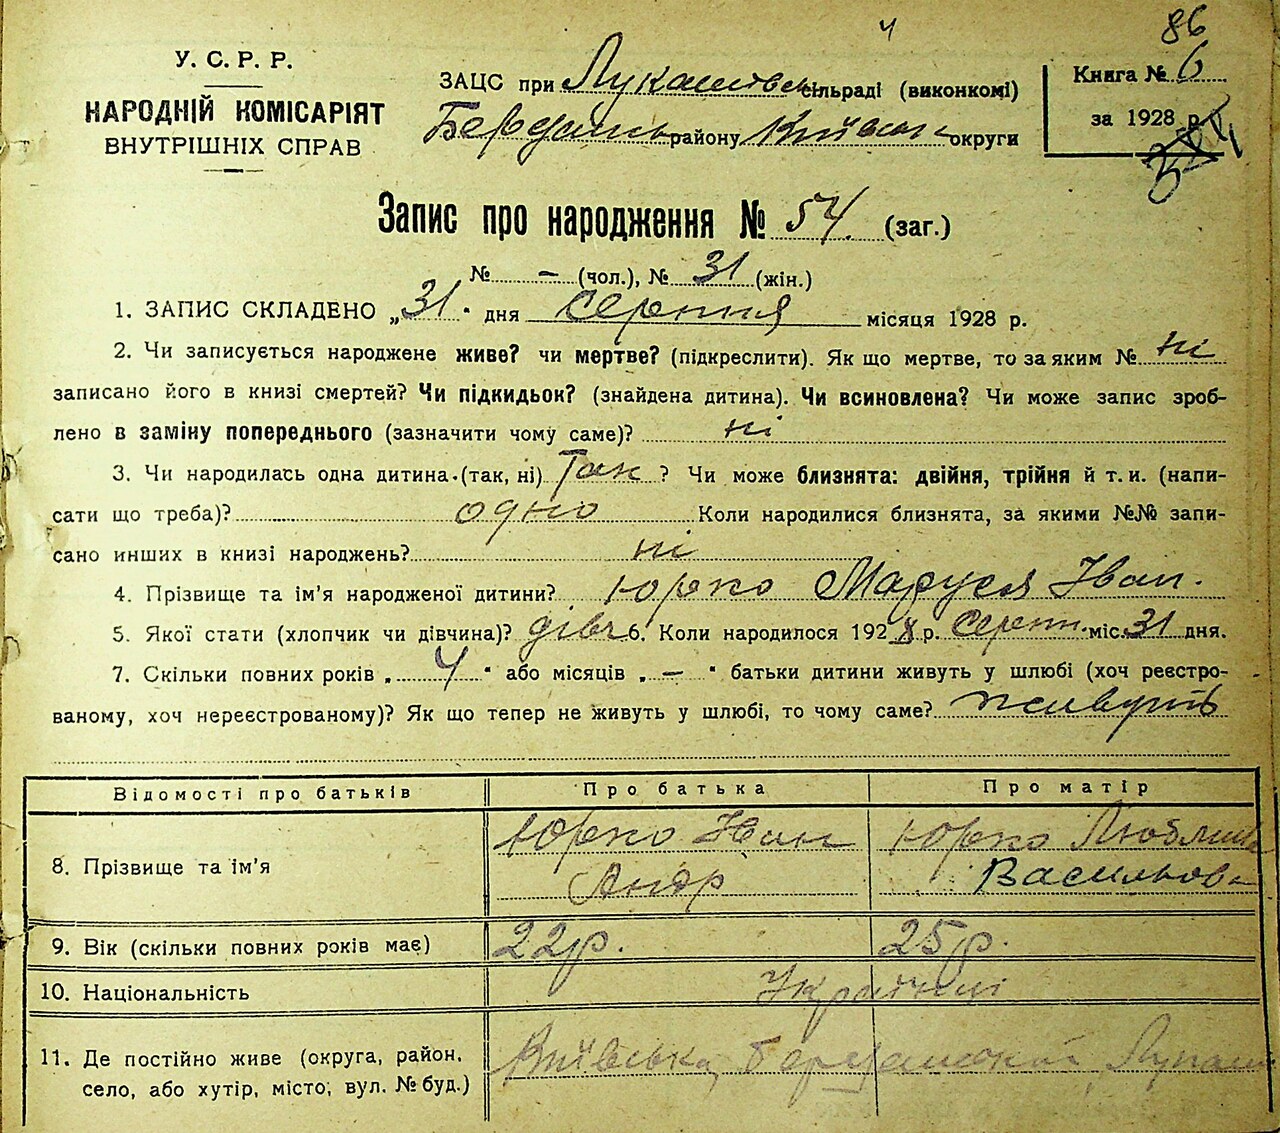 86
ч
У. С. Р. Р.
НАРОДНІЙ КОМІСАРІЯТ
ВНУТРІШНІХ СПРАВ
ЗАЦС при Лукашівсь сільраді (виконкомі)
району Київськ округи
Книга № 6
за 1928 р.
Запис про народження № 54. (заг.)
№ – (чол.), № 31 (жін.)
1. ЗАПИС СКЛАДЕНО „31" дня серпня місяця 1928 р.
2. Чи записується народжене живе? чи мертве? (підкреслити). Як що мертве, то за яким № ні
записано його в книзі смертей? Чи підкидьок? (знайдена дитина). Чи всиновлена? Чи може запис зроб-
лено в заміну попереднього (зазначити чому саме)? ні
3. Чи народилась одна дитина (так, ні) Так ? Чи може близнята: двійня, трійня й т. и. (напи-
сати що треба)? одно Коли народилися близнята, за якими №№ запи-
сано инших в книзі народжень? ні
4. Прізвище та ім'я народженої дитини? Юрко Маруся Іван.
5. Якої стати (хлопчик чи дівчина)? дівч 6. Коли народилося 1928 р. серпн. міс. 31 дня.
7. Скільки повних років „ 4 " або місяців „ – " батьки дитини живуть у шлюбі (хоч реєстро-
ваному, хоч нереєстрованому)? Як що тепер не живуть у шлюбі, то чому саме? живуть
Відомості про батьків Про батька Про матір
8. Прізвище та ім'я Юрко Іван Андр Юрко Васильов
9. Вік (скільки повних років має) 22 р. 25 р.
10. Національність Українці
11. Де постійно живе (округа, район, Київська
село, або хутір, місто, вул. № буд.)